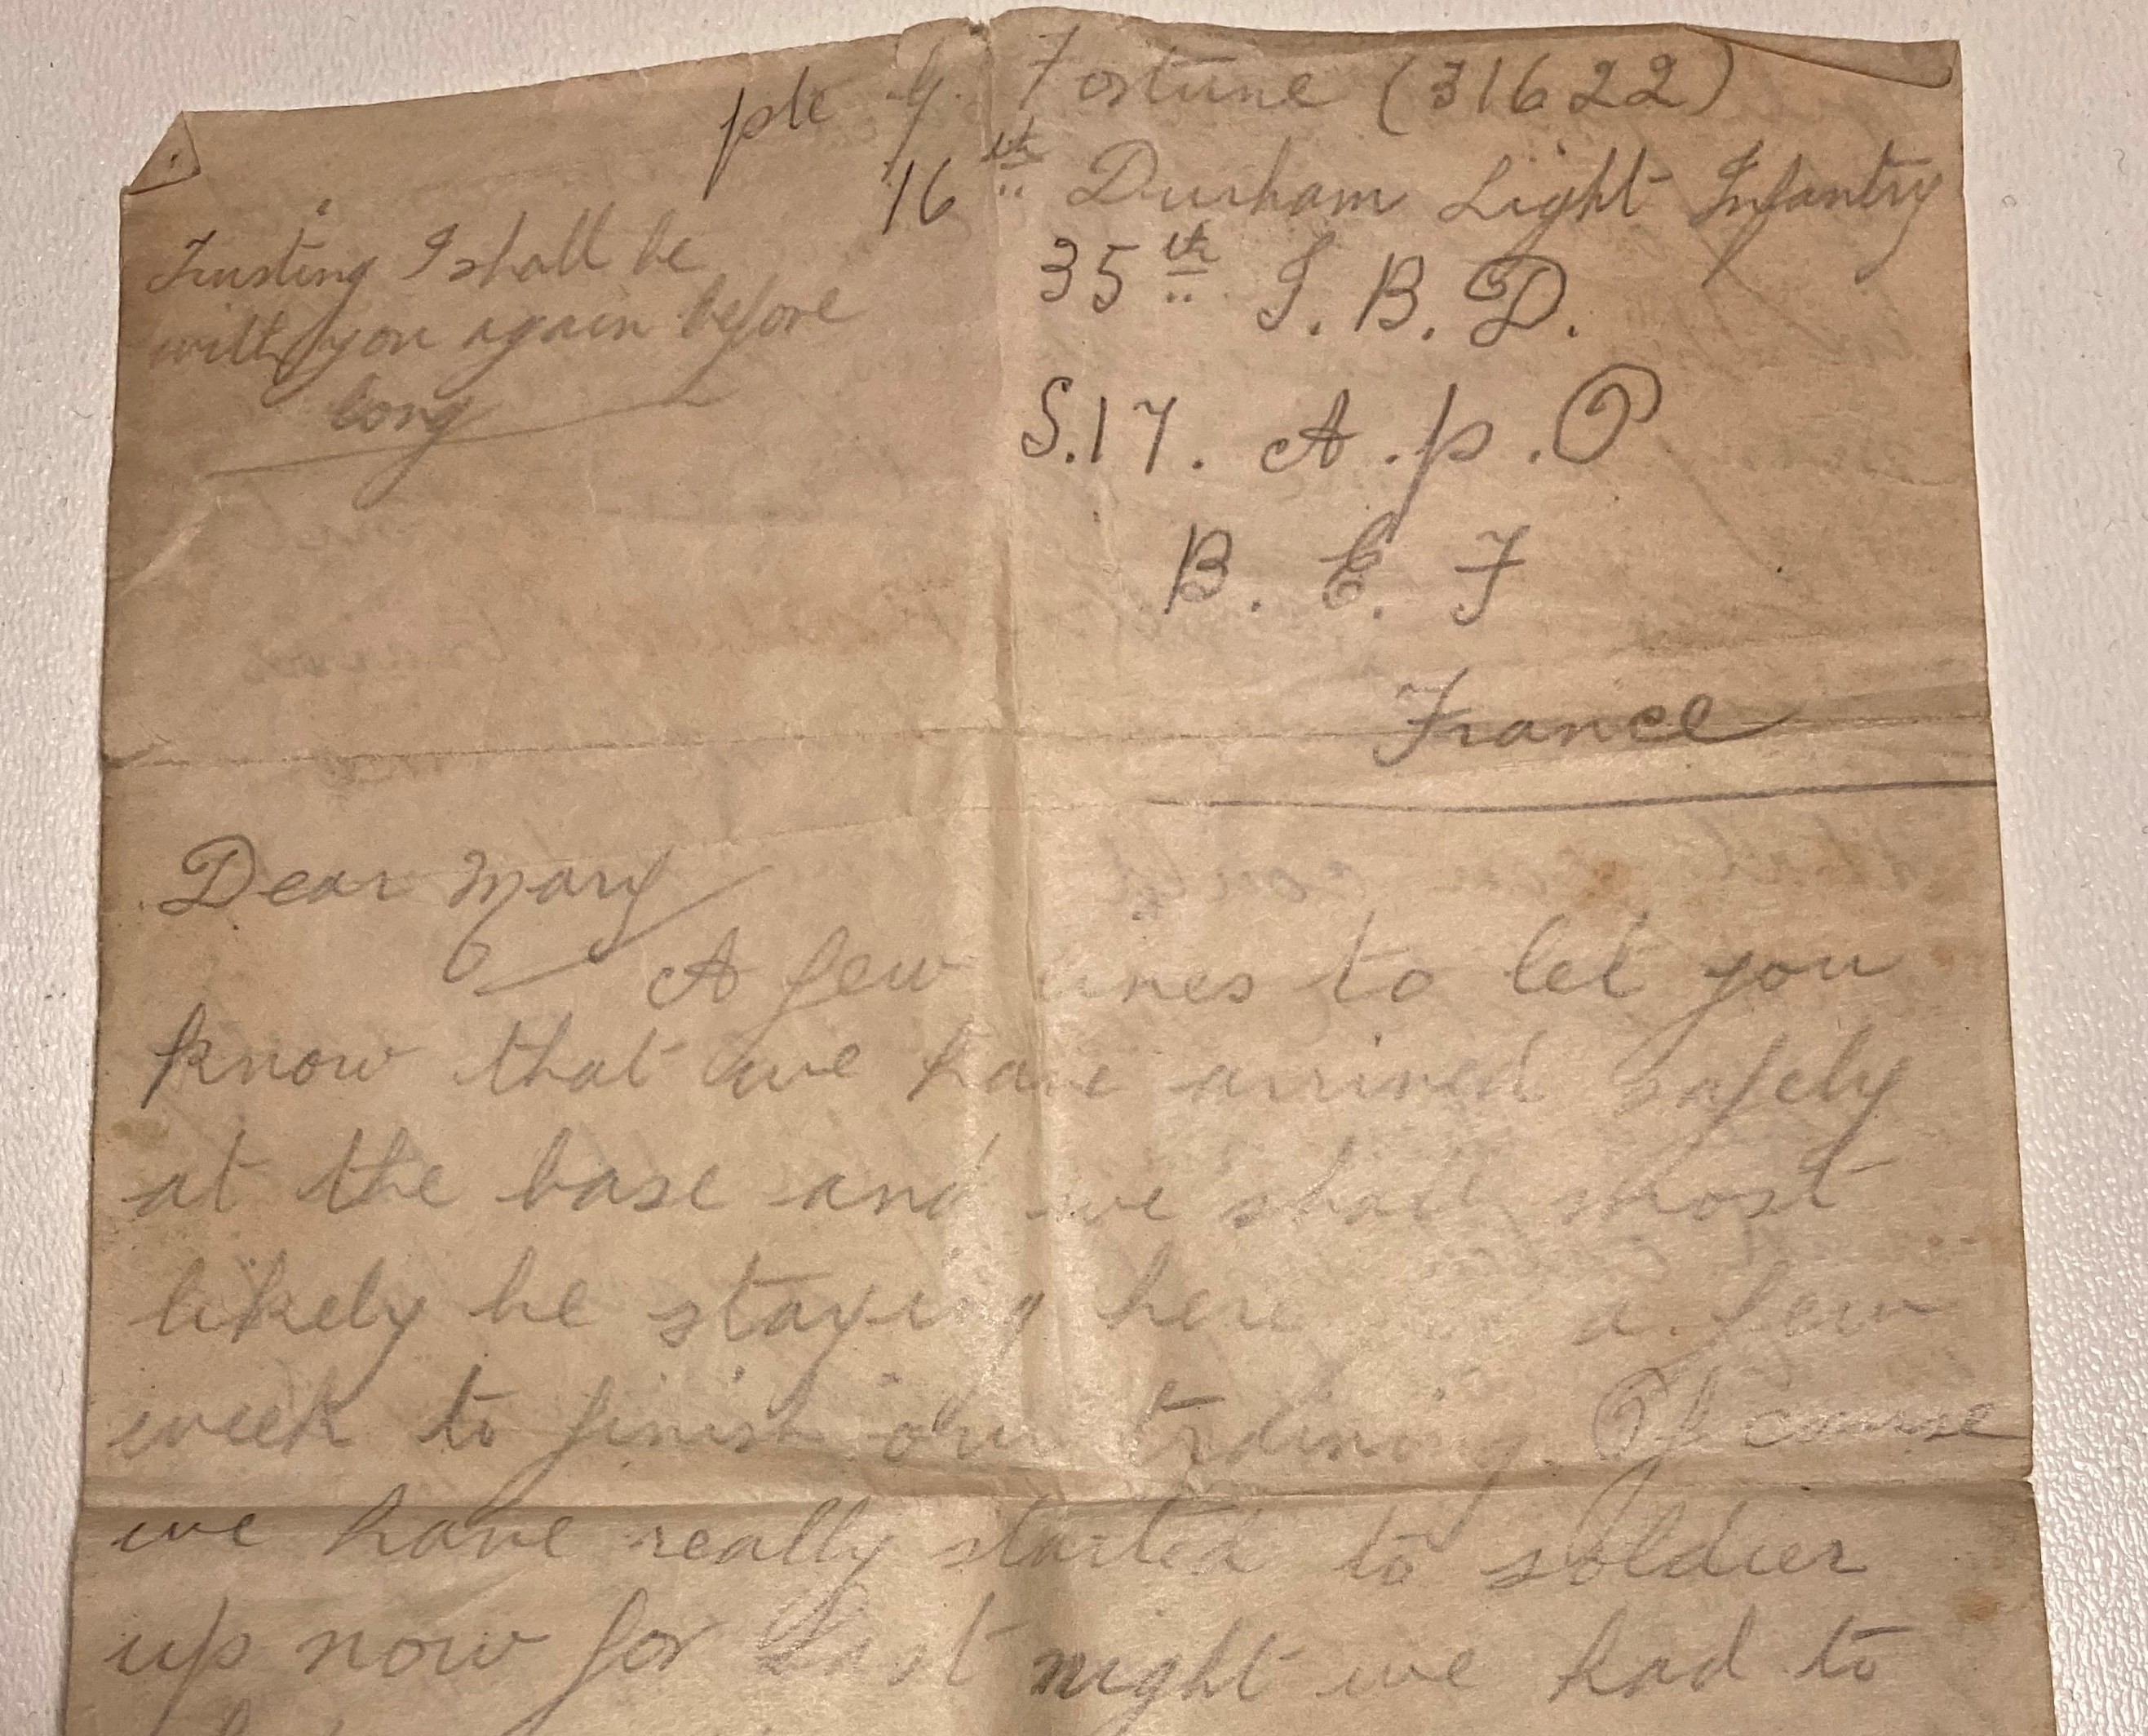 pte G. Fortune (31622)
16th Durham Light Infantry
35th I. B. D.
S.17. A. P. O
B. E. F
France
Trusting I shall be
with you again before
long
Dear Mary
A few lines to let you
know that we have arrived safely
at the base and we shall most
likely be staying here a few
week to finish our training. Of course
we have really started to soldier
up now for last night we had to